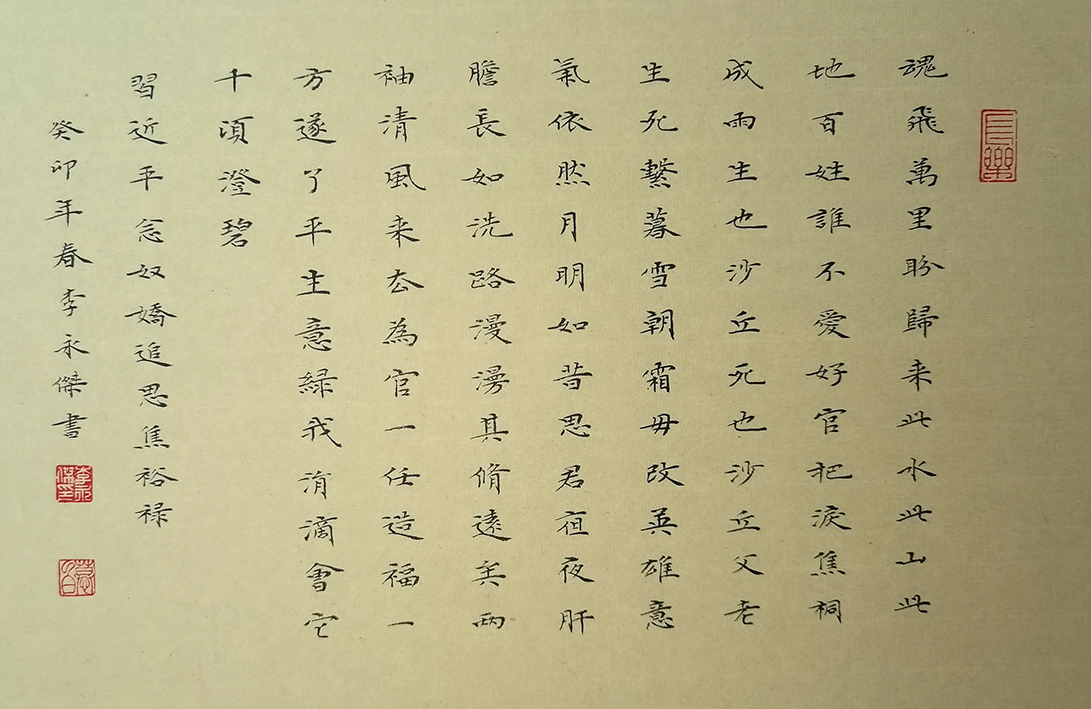 長樂
魂飛萬里盼歸来此水此山此
地百姓誰不愛好官把淚焦桐
成雨生也沙丘死也沙丘父老
生死繫暮雪朝霜毋改英雄意
氣依然月明如昔思君夜夜肝
膽長如洗路漫漫其脩遠矣兩
袖清風来去為官一任造福一
方遂了平生意綠我涓滴會它
千頃澄碧
習近平念奴嬌追思焦裕禄
癸卯年春李永傑書
李永傑印